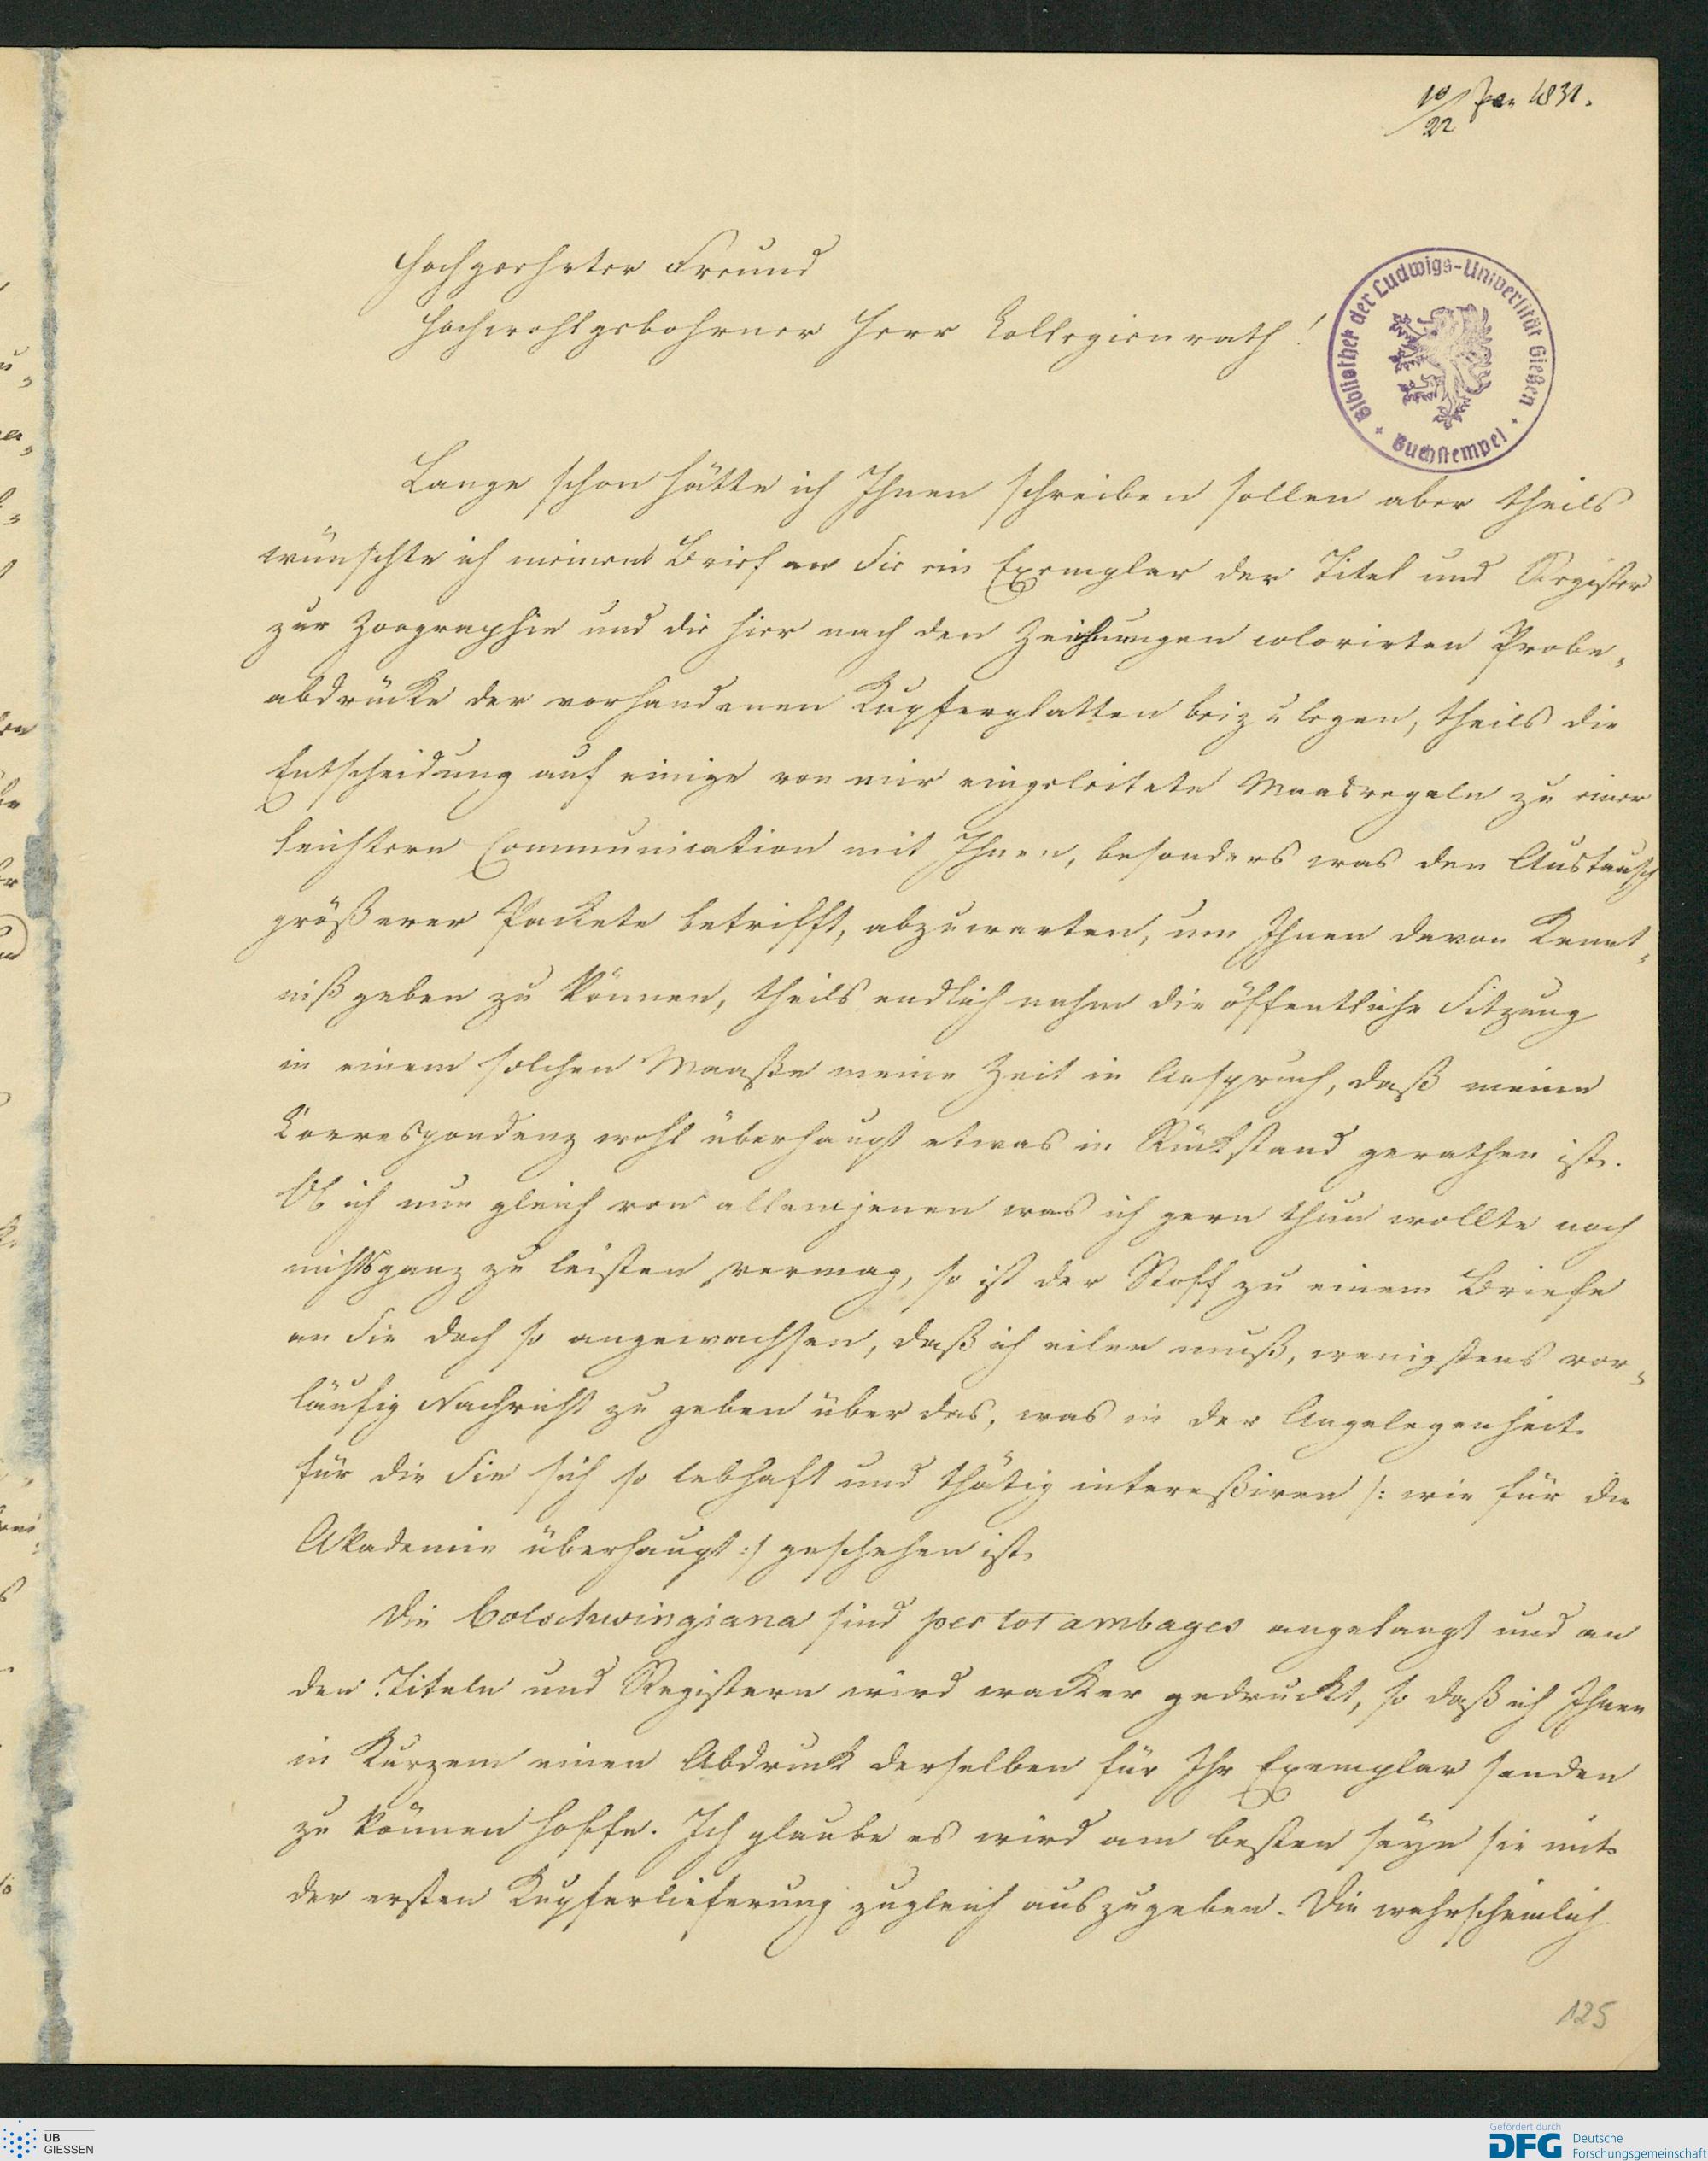 10/22 Jan 1831.
Hochgeehrter Freund
Hochwohlgebohrner Herr Collegienrath!
Bibliothek der Ludwigs-Universität Gießen
Buchstempel
Lange schon hätte ich Ihnen schreiben sollen aber theils
wünschte ich meinem Brief an Sie ein Exemplar der Titel und Register
zur Zoographie und die hier nach den Zeichnungen colorirten Probe„
abdrücke der vorhandenen Kupferplatten beizulegen, theils die
Entscheidung auf einige von mir eingeleitete Maasregeln zu einer
leichtern Communication mit Ihnen, besonders was den Austausch
größerer Packete betrifft, abzuwarten, um Ihnen davon Kennt„
niß geben zu können, theils endlich nahm die öffentliche Sitzung
in einem solchen Maaße meine Zeit in Anspruch, daß meine
Correspondenz wohl überhaupt etwas in Rückstand gerathen ist.
Ob ich nun gleich von allem jenen was ich gern thun wollte noch
nichts ganz zu leisten vermag, so ist der Stoff zu einem Briefe
an Sie doch so angewachsen, daß ich eilen muß, wenigstens vor„
läufig Nachricht zu geben über das, was in der Angelegenheit
für die Sie sich so lebhaft und thätig intereßiren /: wie für die
Akademie überhaupt :/ geschehen ist.
Die Bolschwingiana sind per tot ambages angelangt und an
den Titeln und Registern wird wacker gedruckt, so daß ich Ihnen
in Kurzem einen Abdruck derselben für Ihr Exemplar senden
zu können hoffe. Ich glaube es wird am besten seyn sie mit
der ersten Kupferlieferung zugleich auszugeben. Die wahrscheinlich
125
UB
GIESSEN
Gefördert durch
DFG Deutsche
Forschungsgemeinschaft